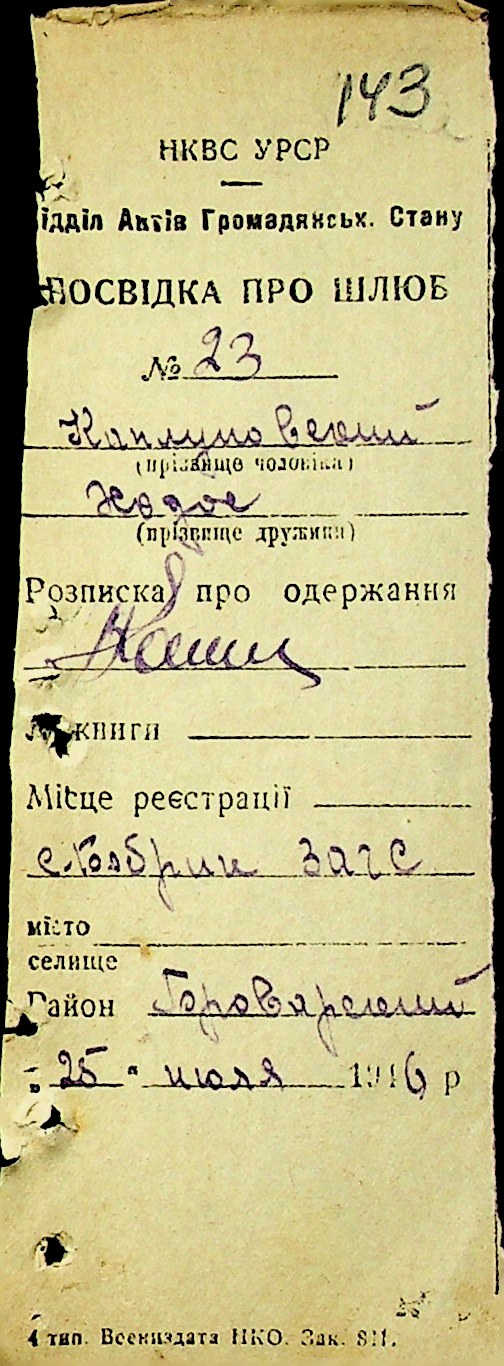 143
НКВС УРСР
ідділ Актів Громадянськ. Стану
ПОСВІДКА ПРО ШЛЮБ
№ 23
Каплуновский
(прізвище чоловіка)
Ходос
(прізвище дружини)
Розписка про одержання
№ книги
Місце реєстрації
с. Бобрик ЗАГС
місто
селище
Район Броварский
"25" июля 1946 р
4 тип. Воениздата НКО. Зак. 811.